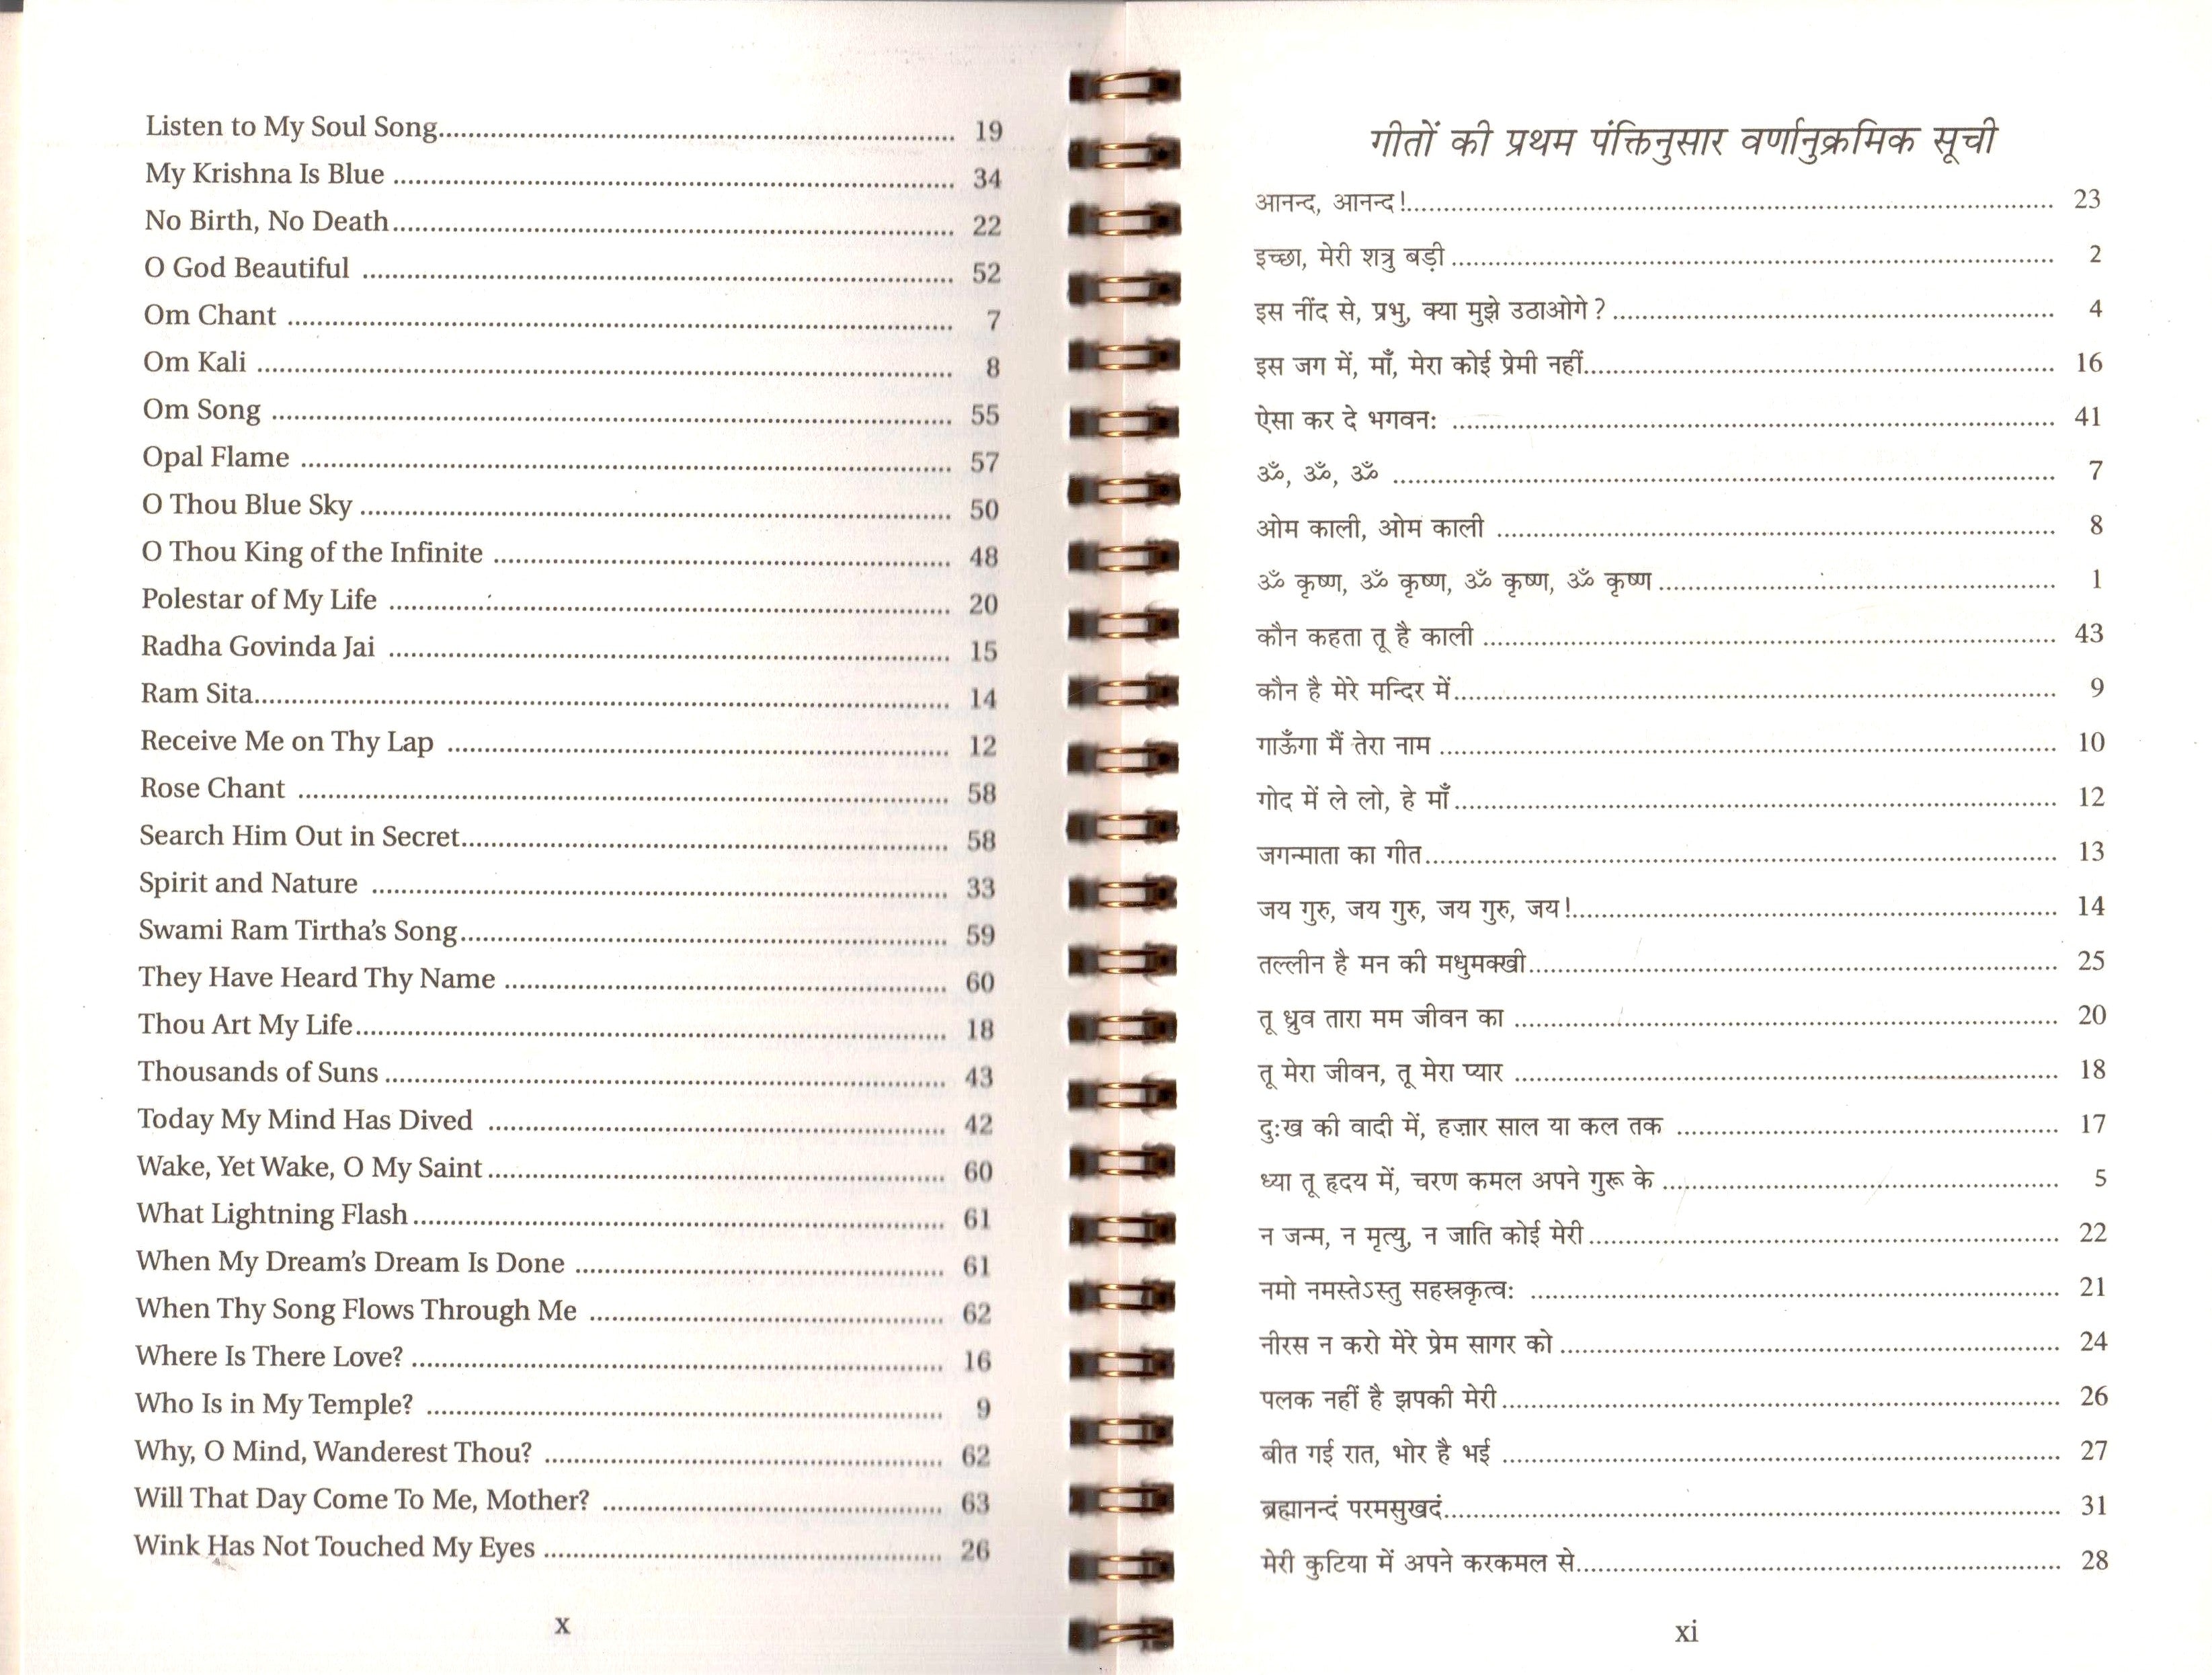 Listen to My Soul Song................................ 19
My Krishna Is Blue ................................ 34
No Birth, No Death................................ 22
O God Beautiful ................................ 52
Om Chant ................................ 7
Om Kali ................................ 8
Om Song ................................ 55
Opal Flame ................................ 57
O Thou Blue Sky ................................ 50
O Thou King of the Infinite ................................ 48
Polestar of My Life ................................ 20
Radha Govinda Jai ................................ 15
Ram Sita................................ 14
Receive Me on Thy Lap ................................ 12
Rose Chant ................................ 58
Search Him Out in Secret................................ 58
Spirit and Nature ................................ 33
Swami Ram Tirtha’s Song................................ 59
They Have Heard Thy Name ................................ 60
Thou Art My Life................................ 18
Thousands of Suns ................................ 43
Today My Mind Has Dived ................................ 42
Wake, Yet Wake, O My Saint ................................ 60
What Lightning Flash ................................ 61
When My Dream’s Dream Is Done ................................ 61
When Thy Song Flows Through Me ................................ 62
Where Is There Love? ................................ 16
Who Is in My Temple? ................................ 9
Why, O Mind, Wanderest Thou? ................................ 62
Will That Day Come To Me, Mother? ................................ 63
Wink Has Not Touched My Eyes ................................ 26
x
गीतों की प्रथम पंक्तिनुसार वर्णानुक्रमिक सूची
आनन्द, आनन्द!................................ 23
इच्छा, मेरी शत्रु बड़ी ................................ 2
इस नींद से, प्रभु, क्या मुझे उठाओगे ? ................................ 4
इस जग में, माँ, मेरा कोई प्रेमी नहीं................................ 16
ऐसा कर दे भगवन: ................................ 41
ॐ, ॐ, ॐ ................................ 7
ओम काली, ओम काली ................................ 8
ॐ कृष्ण, ॐ कृष्ण, ॐ कृष्ण, ॐ कृष्ण ................................ 1
कौन कहता तू है काली ................................ 43
कौन है मेरे मन्दिर में................................ 9
गाऊँगा मैं तेरा नाम ................................ 10
गोद में ले लो, हे माँ................................ 12
जगन्माता का गीत................................ 13
जय गुरु, जय गुरु, जय गुरु, जय!................................ 14
तल्लीन है मन की मधुमक्खी................................ 25
तू ध्रुव तारा मम जीवन का ................................ 20
तू मेरा जीवन, तू मेरा प्यार ................................ 18
दु:ख की वादी में, हज़ार साल या कल तक ................................ 17
ध्या तू हृदय में, चरण कमल अपने गुरू के ................................ 5
न जन्म, न मृत्यु, न जाति कोई मेरी................................ 22
नमो नमस्तेऽस्तु सहस्रकृत्व: ................................ 21
नीरस न करो मेरे प्रेम सागर को ................................ 24
पलक नहीं है झपकी मेरी................................ 26
बीत गई रात, भोर है भई ................................ 27
ब्रह्मानन्दं परमसुखदं................................ 31
मेरी कुटिया में अपने करकमल से................................ 28
xi